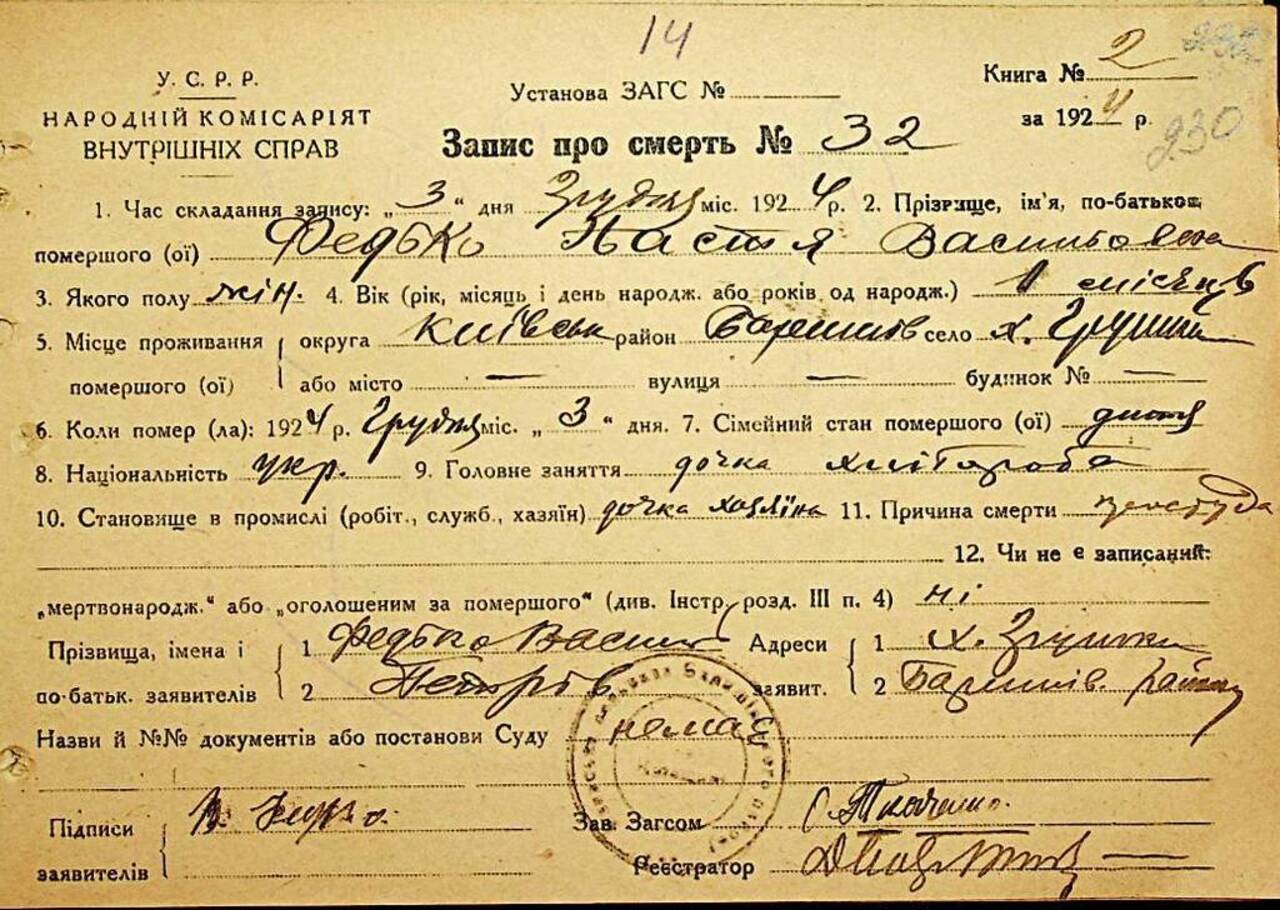 14
У. С. Р. Р.
НАРОДНІЙ КОМІСАРІЯТ
ВНУТРІШНІХ СПРАВ
Установа ЗАГС №
Книга № 2
за 1924 р.
230
Запис про смерть № 32
1. Час складання запису: „3“ дня Грудня міс. 1924 р. 2. Прізвище, ім'я, по-батькові
помершого (ої) Федько Настя Васильовна
3. Якого полу жін. 4. Вік (рік, місяць і день народж. або років од народж.) місяців
5. Місце проживання округа Київськ район Баришів село х.
помершого (ої) або місто — вулиця — будинок № —
6. Коли помер (ла): 1924 р. Грудня міс. „3“ дня. 7. Сімейний стан помершого (ої) дитя
8. Національність укр. 9. Головне заняття дочка хлібороба
10. Становище в промислі (робіт., служб., хазяїн) дочка хазяїна 11. Причина смерти простуда
12. Чи не є записаний:
„мертвонародж.“ або „оголошеним за помершого“ (див. Інстр. розд. III п. 4) ні
Прізвища, імена і 1 Федько Василь Адреси 1 х.
по-батьк. заявителів 2 Петрів заявит. 2 Баришів. району
Назви й №№ документів або постанови Суду немає
Підписи Зав. Загсом Ткаченко
заявителів Реєстратор